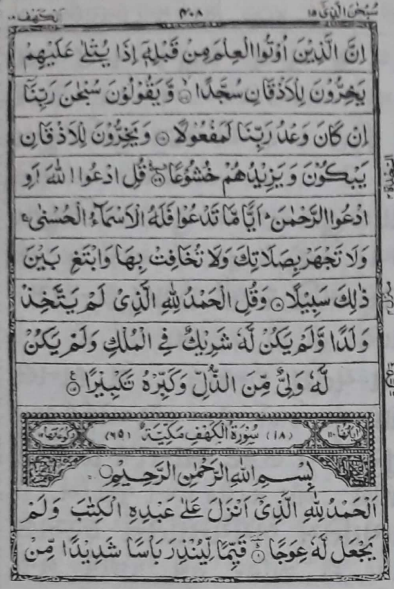 سُبْحٰنَ الَّذِیْٓ ۱۵ ۴۰۸ اَلْكَهْف ۱۸
اِنَّ الَّذِیْنَ اُوْتُوا الْعِلْمَ مِنْ قَبْلِهٖۤ اِذَا یُتْلٰى عَلَیْهِمْ
یَخِرُّوْنَ لِلْاَذْقَانِ سُجَّدًا ۙ وَّیَقُوْلُوْنَ سُبْحٰنَ رَبِّنَاۤ
اِنْ كَانَ وَعْدُ رَبِّنَا لَمَفْعُوْلًا ۝ وَیَخِرُّوْنَ لِلْاَذْقَانِ
یَبْكُوْنَ وَیَزِیْدُهُمْ خُشُوْعًا ۝ قُلِ ادْعُوا اللّٰهَ اَوِ
ادْعُوا الرَّحْمٰنَ ؕ اَیًّا مَّا تَدْعُوْا فَلَهُ الْاَسْمَآءُ الْحُسْنٰى ۚ
وَلَا تَجْهَرْ بِصَلَاتِكَ وَلَا تُخَافِتْ بِهَا وَابْتَغِ بَیْنَ
ذٰلِكَ سَبِیْلًا ۝ وَقُلِ الْحَمْدُ لِلّٰهِ الَّذِیْ لَمْ یَتَّخِذْ
وَلَدًا وَّلَمْ یَكُنْ لَّهٗ شَرِیْكٌ فِی الْمُلْكِ وَلَمْ یَكُنْ
لَّهٗ وَلِیٌّ مِّنَ الذُّلِّ وَكَبِّرْهُ تَكْبِیْرًا ۝
اٰیَاتُهَا ۱۱۰ (۱۸) سُوْرَةُ الْكَهْفِ مَكِّیَّةٌ (۶۹) رُكُوْعَاتُهَا ۱۲
بِسْمِ اللّٰهِ الرَّحْمٰنِ الرَّحِیْمِ ۝
اَلْحَمْدُ لِلّٰهِ الَّذِیْۤ اَنْزَلَ عَلٰى عَبْدِهِ الْكِتٰبَ وَلَمْ
یَجْعَلْ لَّهٗ عِوَجًا ۝ قَیِّمًا لِّیُنْذِرَ بَاْسًا شَدِیْدًا مِّنْ